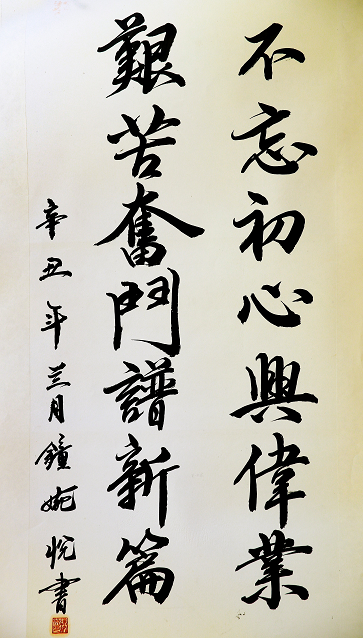 不忘初心興偉業
艱苦奮鬥譜新篇
辛丑年兰月鐘婉悅書